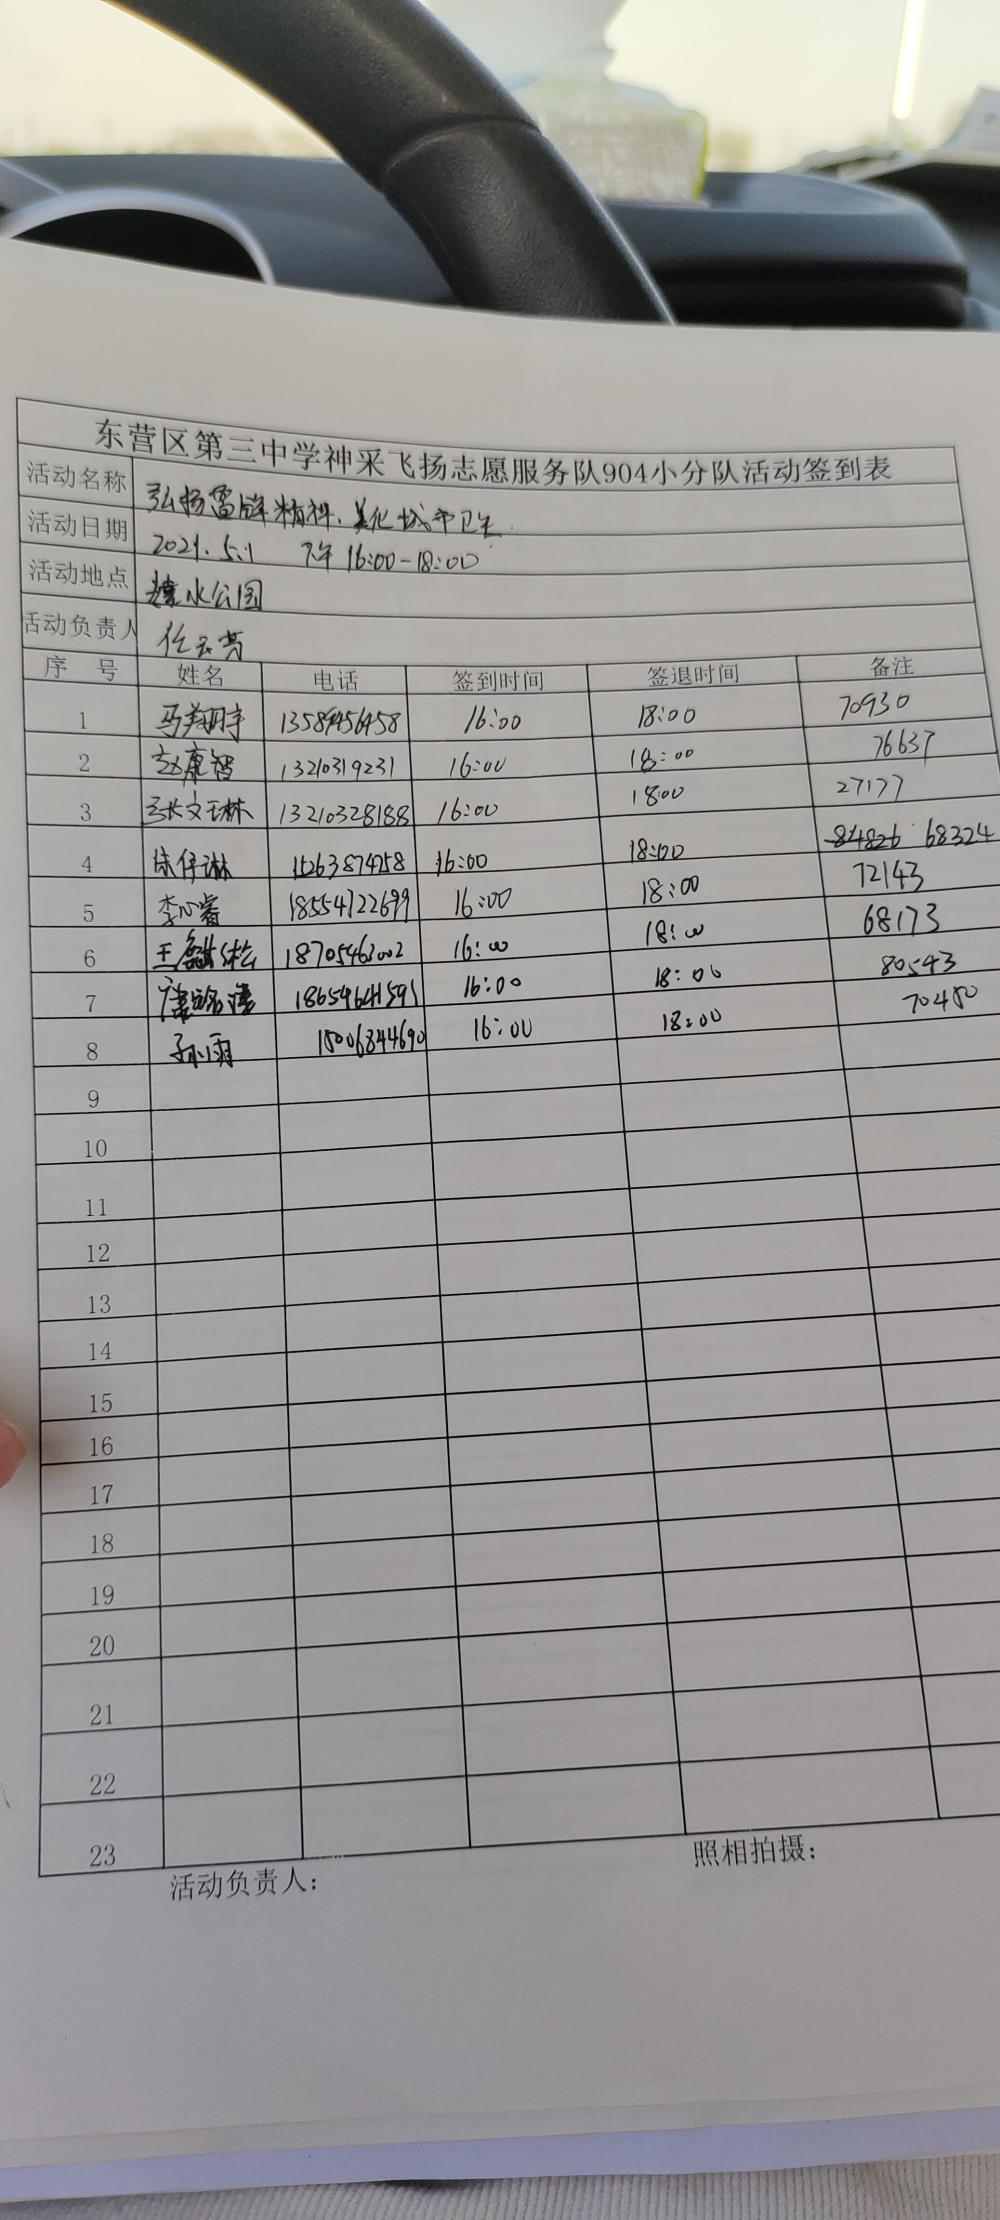 东营区第三中学神采飞扬志愿服务队904小分队活动签到表
活动名称 弘扬雷锋精神、美化城市卫生.
活动日期 2021.5.1 下午 16:00-18:00
活动地点 水公园
活动负责人 任云芳
序 号 姓名 电话 签到时间 签退时间 备注
1 马翔宇 13589456458 16:00 18:00 70930
2 赵康智 13210319231 16:00 18:00 76637
3 张文琳 13210328188 16:00 18:00 27177
4 琳 15263874258 16:00 18:00 84826 68324
5 李心睿 18554722699 16:00 18:00 72143
6 王 松 18705463002 16:00 18:00 68173
7 18659641591 16:00 18:00 80543
8 孙小雨 15006844690 16:00 18:00 70480
9
10
11
12
13
14
15
16
17
18
19
20
21
22
23
活动负责人： 照相拍摄：